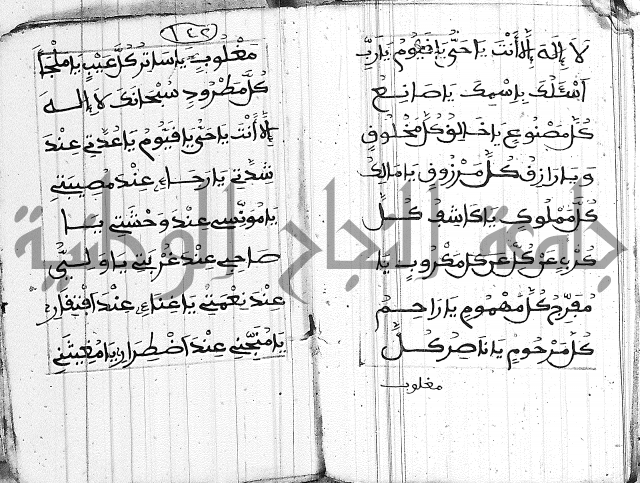 لا إله إلا أنت يا حي يا قيوم يا رب
أسئلك باسمك يا صانع
كل مصنوع يا خالق كل مخلوق
ويا رازق كل مرزوق يا مالك
كل مملوك يا كاشف كل
كرب عن كل مكروب يا
مفرج كل مهموم يا راحم
كل مرحوم يا ناصر كل
مغلوب
١٢٢
مغلوب يا ساتر كل عيب يا ملجأ
كل مطرود سبحانك لا إله
إلا أنت يا حي يا قيوم يا عدتي عند
شدتي يا رجاءي عند مصيبتي
يا مونسي عند وحشتي يا
صاحبي عند غربتي يا وليي
عند نعمتي يا غناءي عند افتقاري
يا منجني عند اضطراري يا مغيثني
جامعة النجاح الوطنية